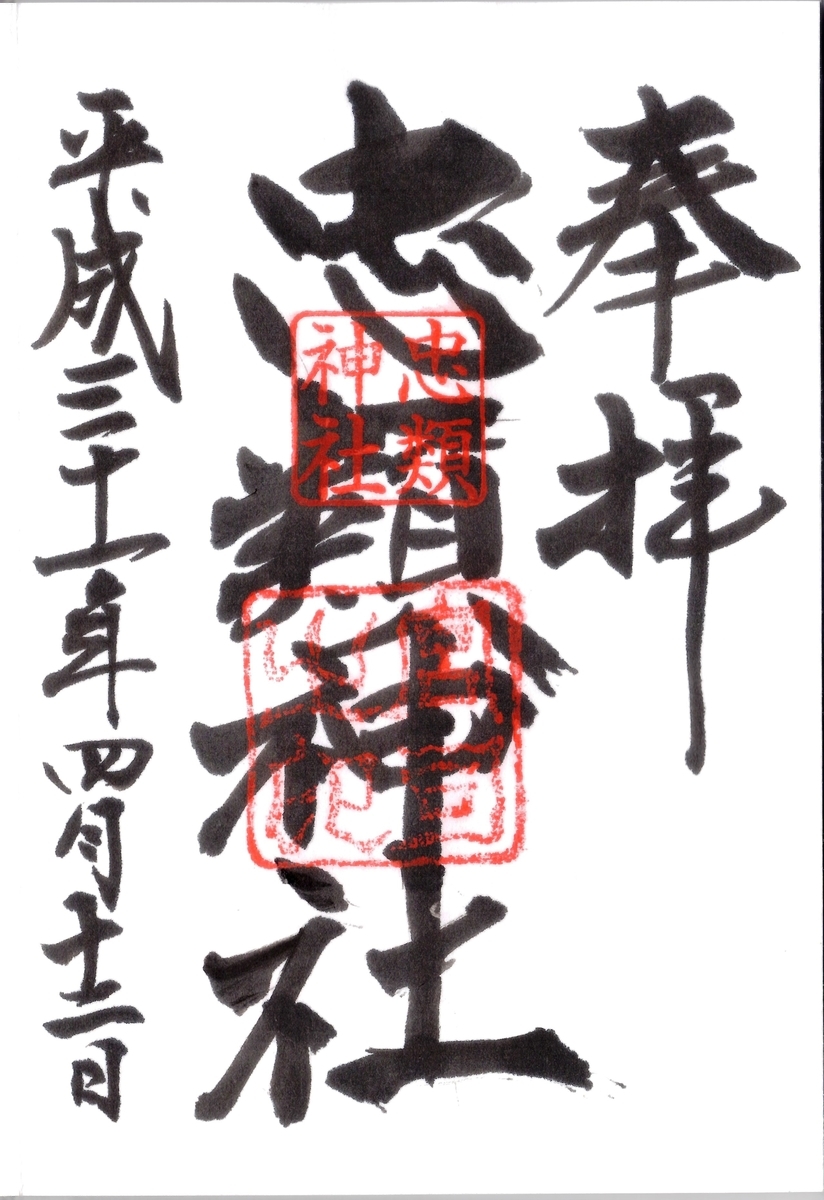 奉拝
忠類神社
忠類
神社
平成三十一年四月十二日